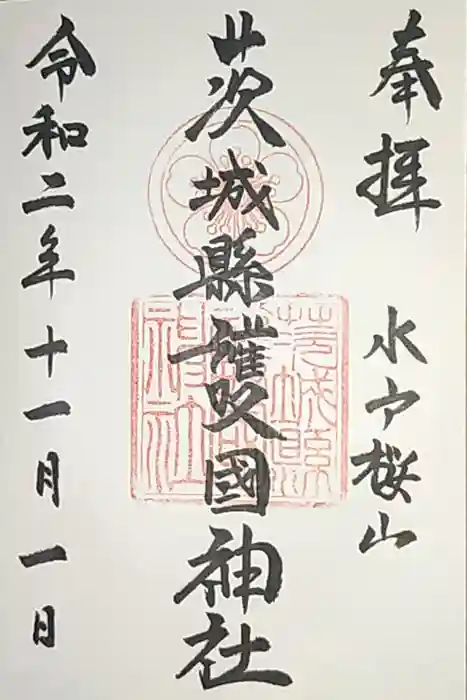 奉拝
水戸桜山
茨城縣護國神社
令和二年十一月一日
茨城縣
護國神社